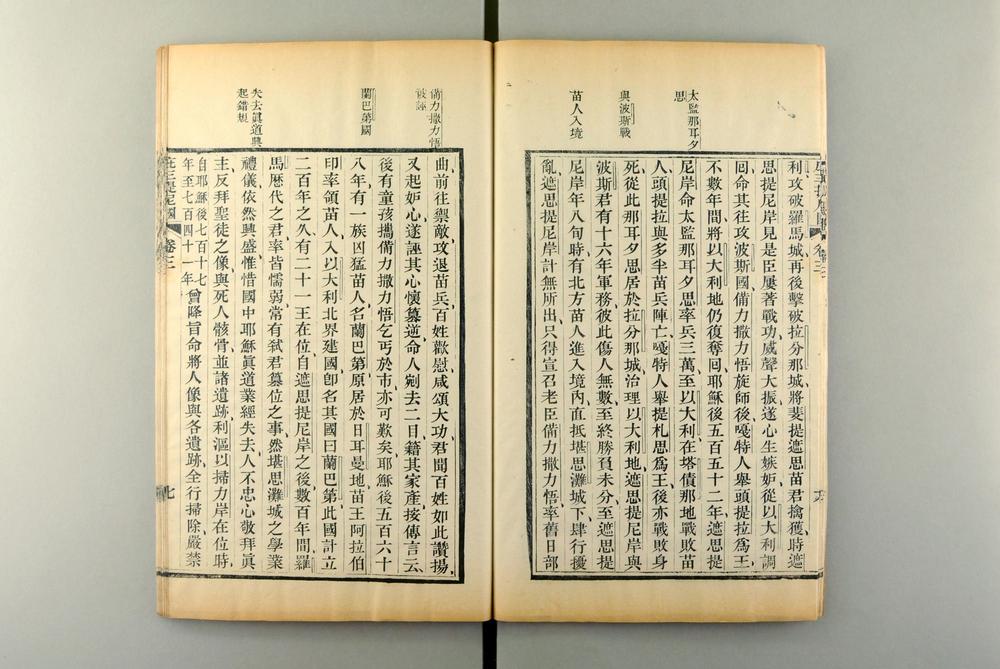 太監那耳夕
思
與波斯戰
苗人入境
利攻破羅馬城再後擊破拉分那城將斐提遮思苗君擒獲時遮
思提尼岸見是臣屢著戰功威聲大振遂心生嫉妒從以大利調
囘命其往攻波斯國備力撒力悟旋師後嘎特人舉頭提拉為王
不數年間將以大利地仍復奪囘耶穌後五百五十二年遮思提
尼岸命太監那耳夕思率兵三萬至以大利在塔債那地戰敗苗
人頭提拉與多半苗兵陣亡嘎特人舉提札思為王後亦戰敗身
死從此那耳夕思居於拉分那城治理以大利地遮思提尼岸與
波斯君有十六年軍務彼此傷人無數至終勝負未分至遮思提
尼岸年八旬時有北方苗人進入境內直抵堪思灘城下肆行擾
亂遮思提尼岸計無所出只得宣召老臣備力撒力悟率舊日部
備力撒力悟
被誣
蘭巴第國
失去眞道興
起錯規
曲前往禦敵攻退苗兵百姓歡慰咸頌大功君聞百姓如此讚揚
又起妒心遂誣其心懷篡逆命人剜去二目籍其家產按傳言云
後有童孩攜備力撒力悟乞丐於市亦可歎矣耶穌後五百六十
八年有一族凶猛苗人名蘭巴第原居於日耳曼地苗王阿拉伯
印率領苗人入以大利北界建國卽名其國曰蘭巴第此國計立
二百年之久有二十一王在位自遮思提尼岸之後數百年間羅
馬歷代之君率皆懦弱常有弒君篡位之事然堪思灘城之學業
禮儀依然興盛惟惜國中耶穌眞道業經失去人不忠心敬拜眞
主反拜聖徒之像與死人骸骨並諸遺跡利漚以掃力岸在位時
自耶穌後七百十七
年至七百四十一年
曾降旨命將人像與各遺跡全行掃除嚴禁
卷三
七